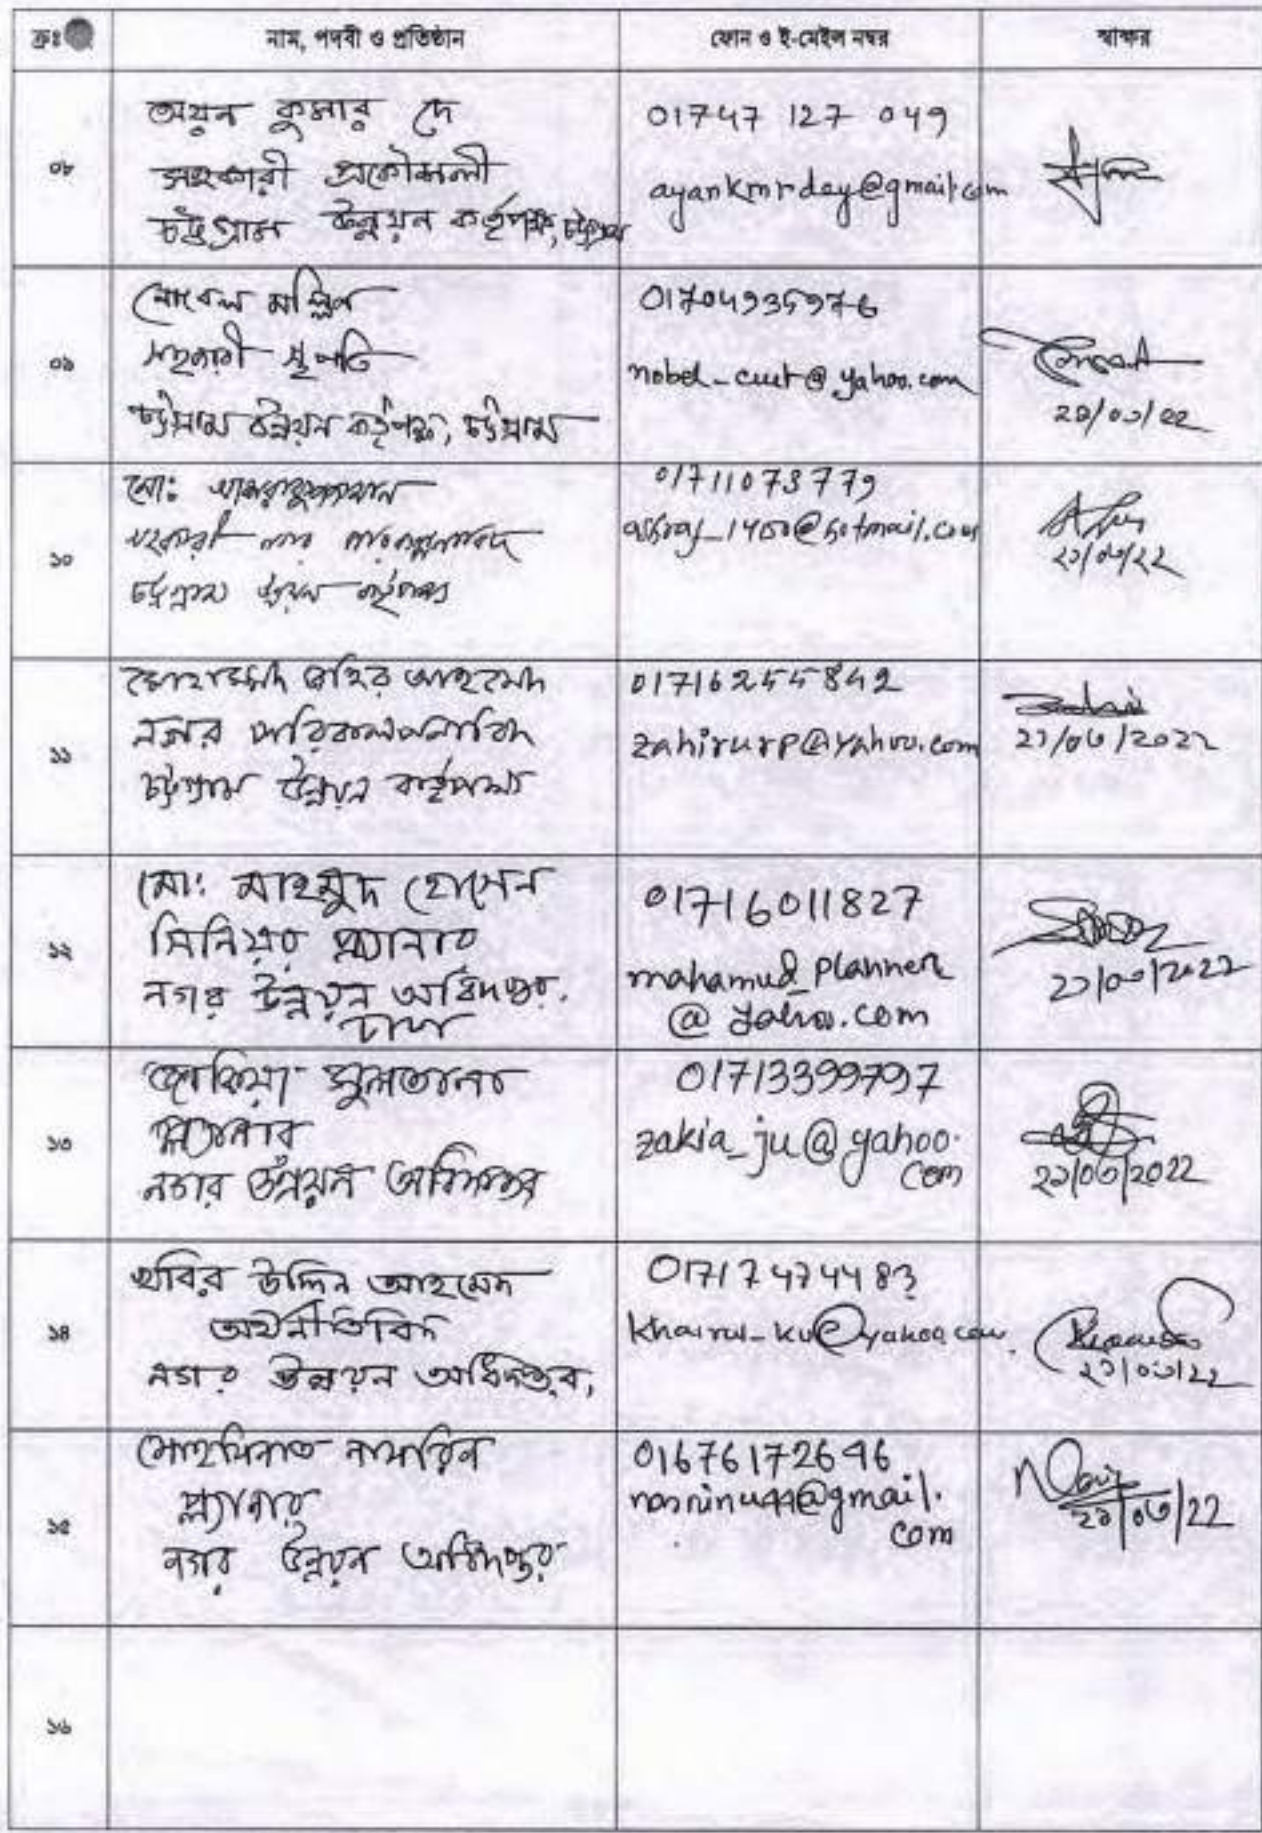 ক্রঃ নাম, পদবী ও প্রতিষ্ঠান ফোন ও ই-মেইল নম্বর স্বাক্ষর
০৮
অয়ন কুমার দে
সহকারী প্রকৌশলী
চট্টগ্রাম উন্নয়ন কর্তৃপক্ষ, চট্টগ্রাম
01747 127 049
ayankmrdey@gmail.com
০৯
নোবেল মল্লিক
সহকারী স্থপতি
চট্টগ্রাম উন্নয়ন কর্তৃপক্ষ, চট্টগ্রাম
01704935976
nobel_cuet@yahoo.com
১০
মো: আশরাফুজ্জামান
সহকারী নগর পরিকল্পনাবিদ
চট্টগ্রাম উন্নয়ন কর্তৃপক্ষ
01711073779
২১/০৩/২২
১১
মোহাম্মদ জহির আহমেদ
নগর পরিকল্পনাবিদ
চট্টগ্রাম উন্নয়ন কর্তৃপক্ষ
01716255842
zahirurp@yahoo.com
২১/০৩/2022
১২
মো: মাহমুদ হোসেন
সিনিয়র প্ল্যানার
নগর উন্নয়ন অধিদপ্তর.
ঢাকা
01716011827
mahamud_planner
@yahoo.com
২১/০৩/২০২২
১৩
জাকিয়া সুলতানা
প্ল্যানার
নগর উন্নয়ন অধিদপ্তর
01713399797
zakia_ju@yahoo.
com
২১/০৩/2022
১৪
খবির উদ্দিন আহমেদ
অর্থনীতিবিদ
নগর উন্নয়ন অধিদপ্তর,
01717474483
khairul_ku@yahoo.com
২১/০৩/২২
১৫
নাসরিন
প্ল্যানার
নগর উন্নয়ন অধিদপ্তর
01676172646
@gmail.
com
২১/০৩/22
১৬